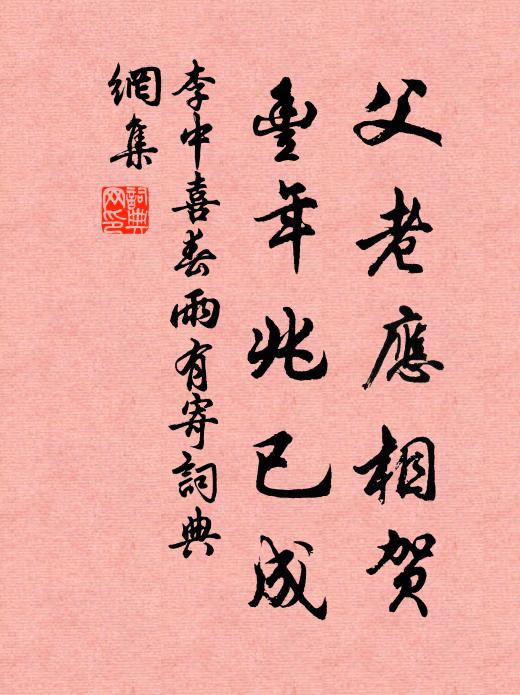 父老應相賀
豐年兆已成
李中喜春雨有寄詞典
網集
詞典網印